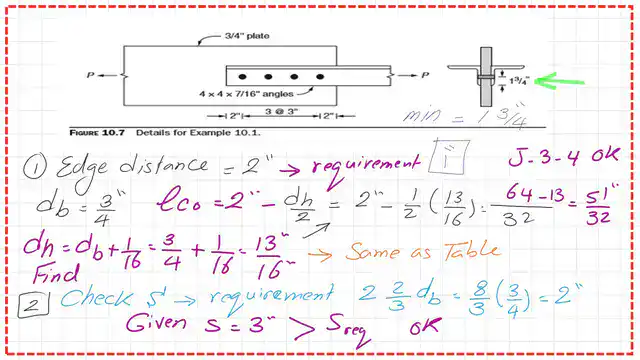 3/4" plate
P
P
4 x 4 x 7/16" angles
2" 3 @ 3" 2"
1 3/4"
min = 1 3/4"
FIGURE 10.7 Details for Example 10.1.
① Edge distance = 2" → requirement 1" J-3-4 OK
db = 3/4" lco = 2" - dh/2 = 2" - 1/2 (13/16) = 64-13/32 = 51"/32
dh = db + 1/16 = 3/4 + 1/16 = 13"/16 → Same as Table
Find
2 Check S → requirement 2 2/3 db = 8/3 (3/4) = 2"
Given S = 3" > Sreq OK